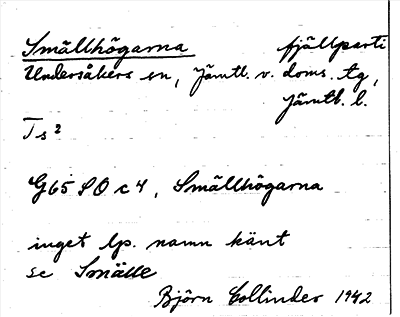 Smällhögarna fjällparti
Undersåkers sn, Jämtl. v. doms. tg,
Jämtl. l.
Ts²
G65 SO c4, Smällhögarna
inget lp. namn känt
se Smälle
Björn Collinder 1942